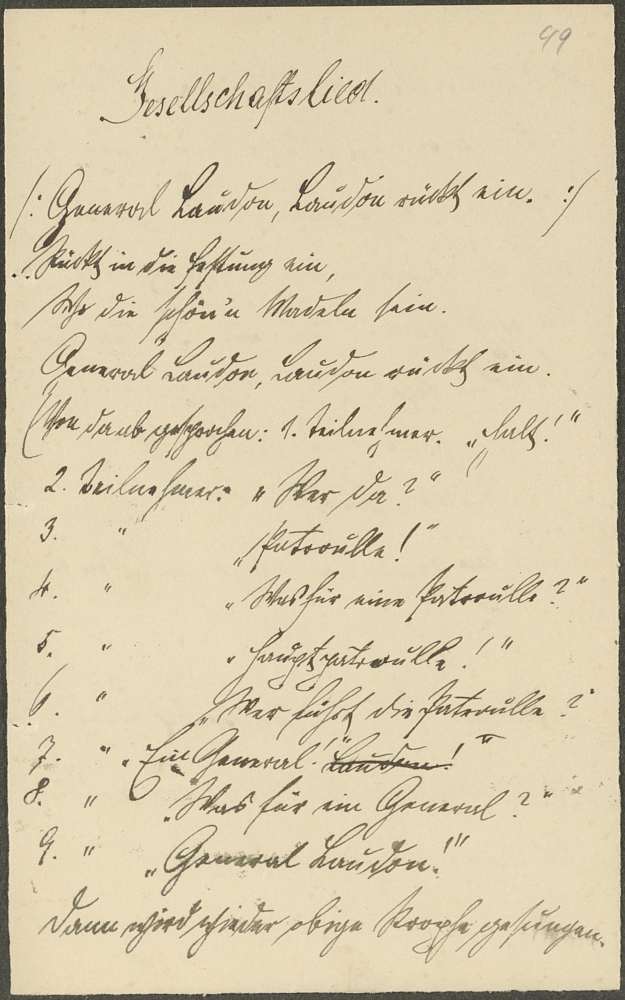 49
Gesellschaftslied.
/: General Laudon, Laudon rückt ein. :/
Rückt in die Festung ein,
Wo die schön'n Madeln sein.
General Laudon, Laudon rückt ein.
(Von da ab gesprochen: 1. Teilnehmer. „Halt!"
2. Teilnehmer: „Wer da?"
3. " „Patroulle!"
4. " „Was für eine Patroulle?"
5. " „Hauptpatroulle!"
6. " „Wer führt die Patroulle?
7. " „Ein General!" Laudon!"
8. " „Was für ein General?"
9. " „General Laudon!"
Dann wird wieder obige Strophe gesungen.